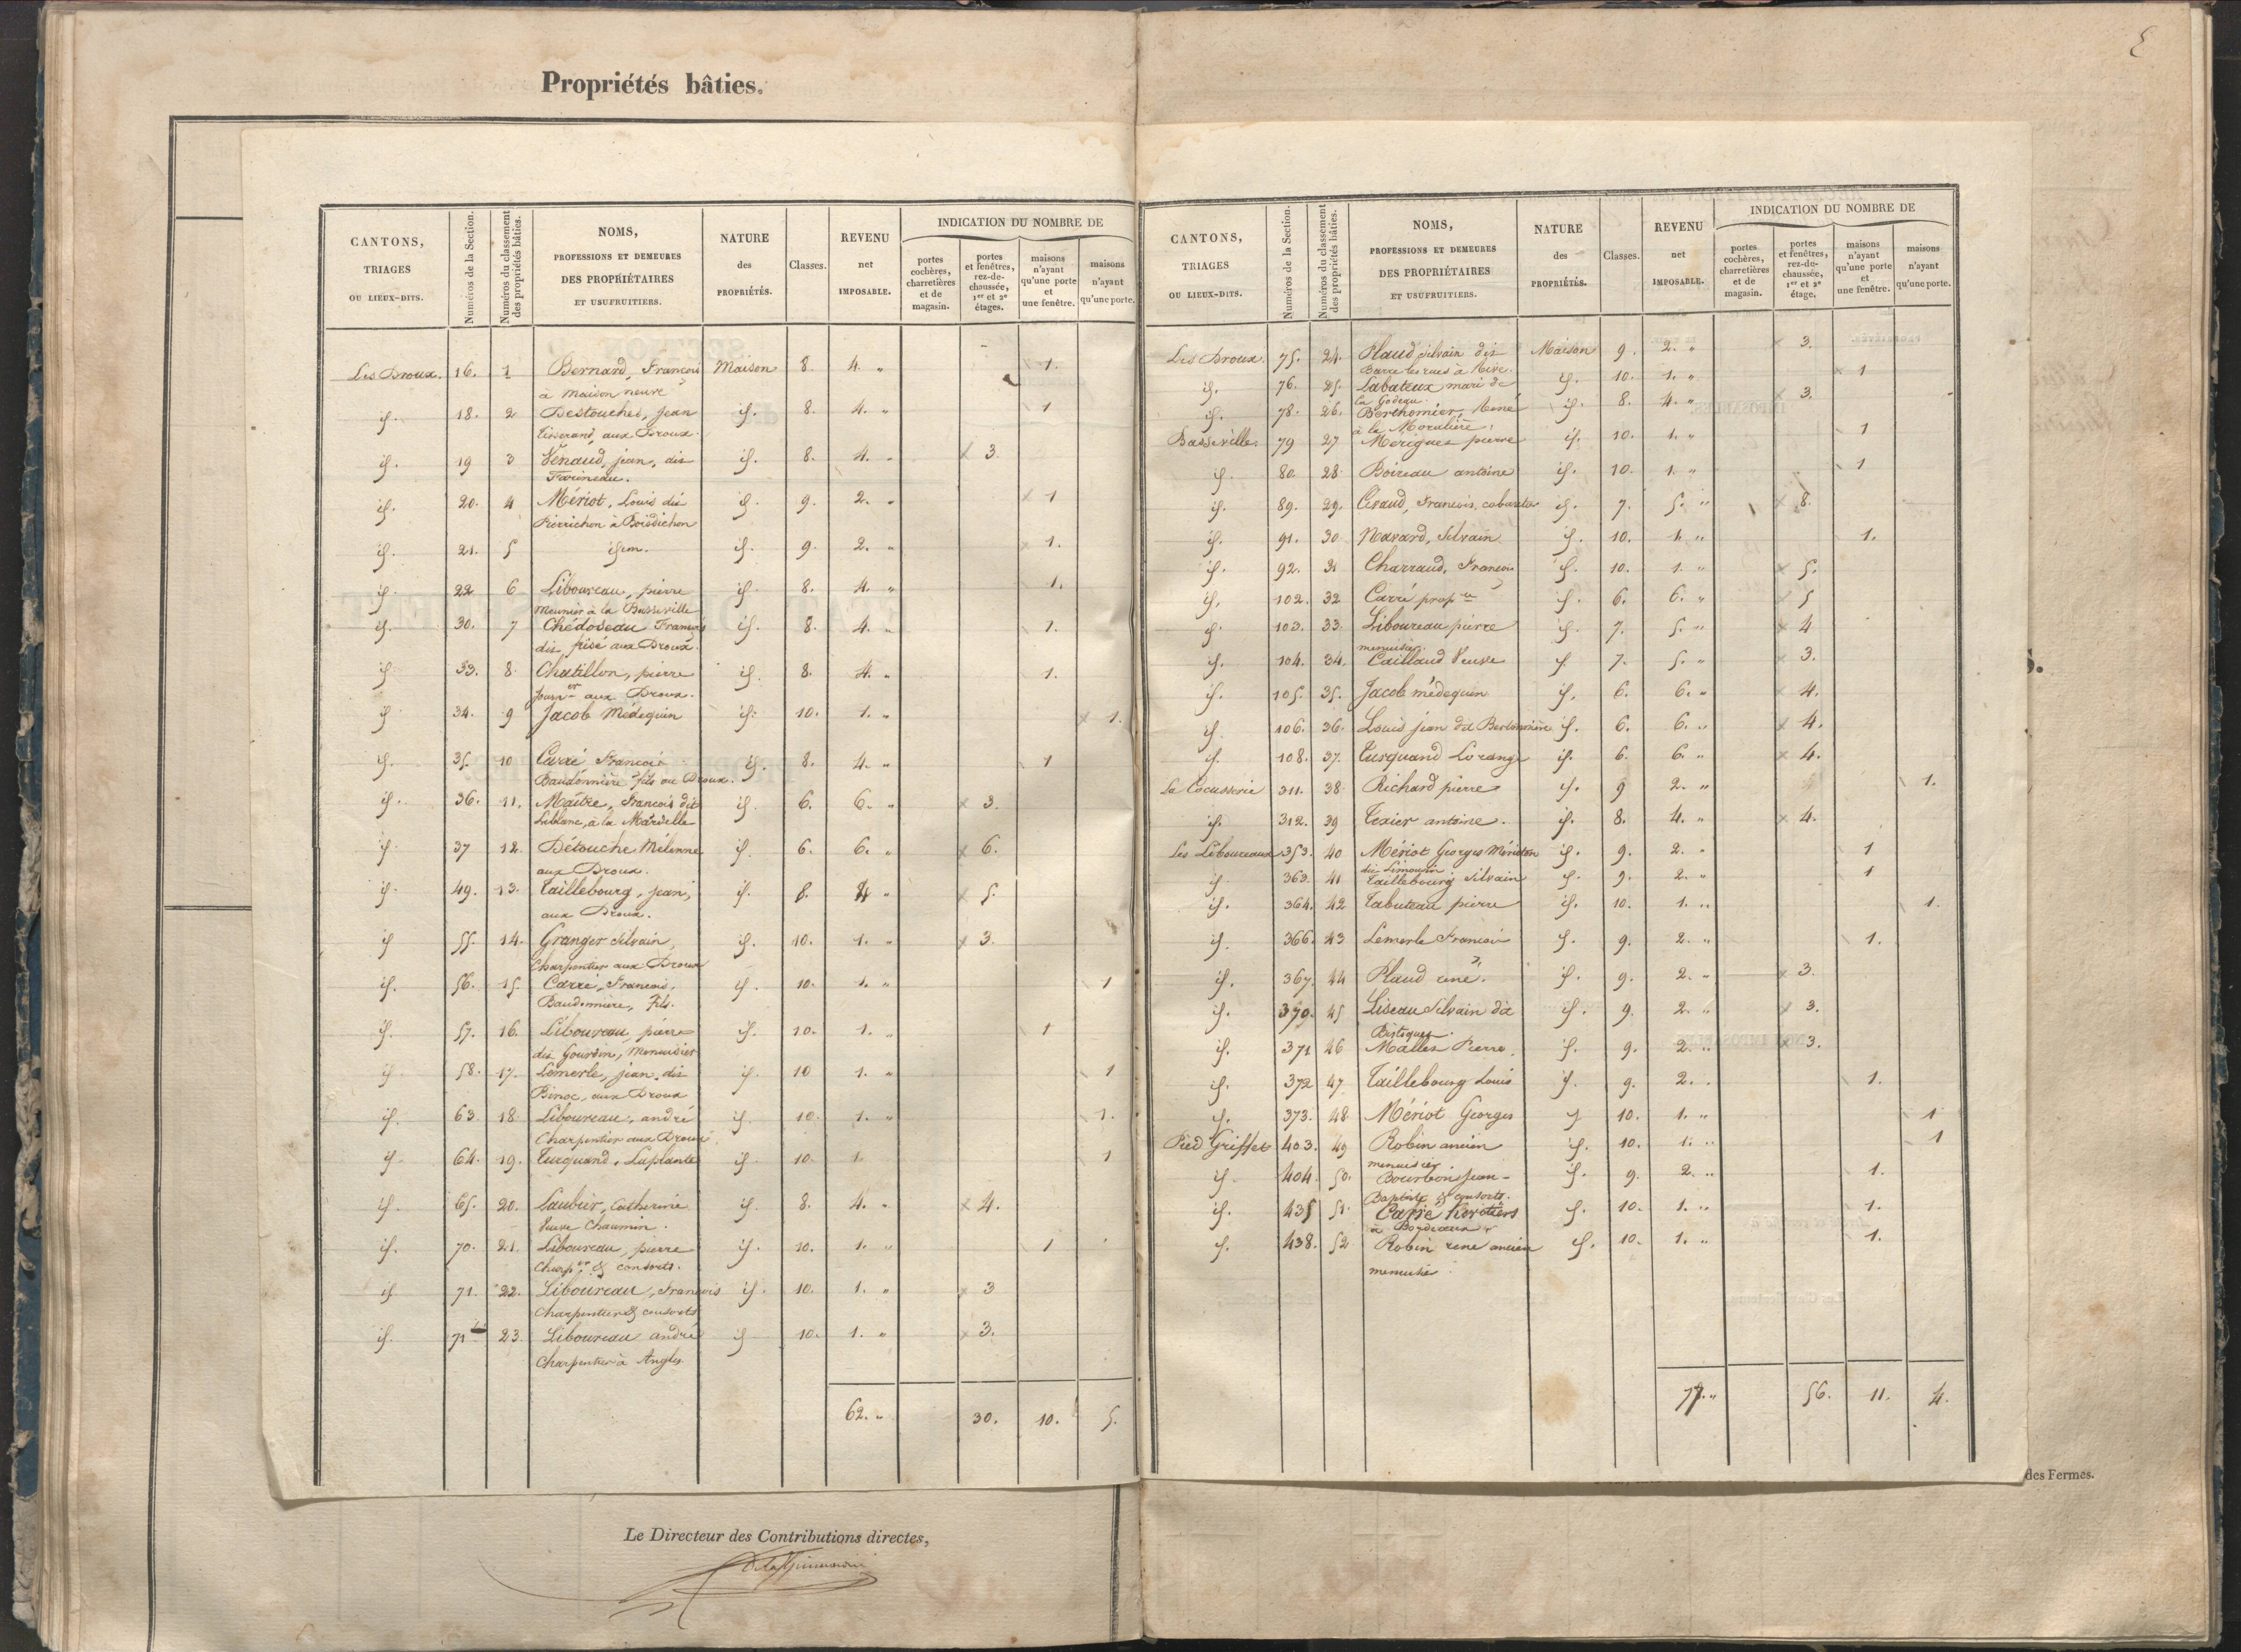 Propriétés bâties.
CANTONS, TRIAGES OU LIEUX-DITS.
Numéros de la Section.
Numéros du classement des propriétés bâties.
NOMS, PROFESSIONS ET DEMEURES DES PROPRIÉTAIRES ET USUFRUITIERS.
NATURE des PROPRIÉTÉS.
Classes.
REVENU net IMPOSABLE.
INDICATION DU NOMBRE DE
portes cochères, charretières et de magasin.
portes et fenêtres, rez-de-chaussée, 1er et 2e étages.
maisons n'ayant qu'une porte et une fenêtre.
maisons n'ayant qu'une porte.
Les Droux. 16. 1 Bernard, François Maison 8. 4. " 1.
a maison neuve
id. 18. 2 Destouches, jean id. 8. 4. " 1
tisserand, aux Droux.
id. 19 3 Venaud, jean, dit id. 8. 4. " x 3.
Farineau.
id. 20. 4 Mériot, Louis dit id. 9. 2. " x 1
Pierrichon à Boisdichon
id. 21. 5 idem. id. 9. 2. " x 1.
id. 22 6 Liboureau, pierre id. 8. 4. " 1.
Meunier à la Busseville
id. 30. 7 Chédozeau François id. 8. 4. " 1.
dit frisé aux Droux.
id. 33. 8. Chatillon, pierre id. 8. 4. " 1.
journer aux Droux.
id 34. 9 Jacob Médequin id. 10. 1. " x 1.
id. 35. 10 Carré François id. 8. 4. " 1
Baudonnière fils au Droux.
id. 36. 11. Maître, François dit id. 6. 6. " x 3.
Leblanc, à la Mardelle
id. 37 12. Détouche Mélenne id. 6. 6. " x 6.
aux Droux.
id. 49. 13. Taillebourg, jean, id. 8. 4 " x 5.
aux Droux.
id 55. 14. Granger Silvain, id. 10. 1. " x 3.
Charpentier aux Droux
id. 56. 15. Carré, François, id. 10. 1. " 1
Baudonnière, fils.
id. 57. 16. Liboureau, pierre id. 10. 1. " 1
dit Gourdin, Menuisier
id 58. 17. Lemerle, jean, dit id. 10 1. " 1
Binoc, aux Droux
id. 63. 18. Liboureau, andré id 10. 1. " 1.
Charpentier aux Droux.
id. 64. 19. Turquand, Laplante id 10. 1. 1
id. 65. 20. Laubier, Catherine id. 8. 4. " x 4.
Veuve Chaumin.
id. 70. 21. Liboureau, pierre id. 10. 1. " 1
Charper & consorts.
id 71. 22. Liboureau, François id. 10. 1. " x 3
Charpentier & consorts
id. 71 23. Liboureau andré id 10. 1. " x 3.
Charpentier à Angles.
62. " 30. 10. 5.
Le Directeur des Contributions directes,
CANTONS, TRIAGES OU LIEUX-DITS.
Numéros de la Section.
Numéros du classement des propriétés bâties.
NOMS, PROFESSIONS ET DEMEURES DES PROPRIÉTAIRES ET USUFRUITIERS.
NATURE des PROPRIÉTÉS.
Classes.
REVENU net IMPOSABLE.
INDICATION DU NOMBRE DE
portes cochères, charretières et de magasin.
portes et fenêtres, rez-de-chaussée, 1er et 2e étage.
maisons n'ayant qu'une porte et une fenêtre.
maisons n'ayant qu'une porte.
Les Droux. 75. 24. Plaud silvain dit Maison 9. 2. " x 3.
id. 76. 25. Labateux mari de id. 10. 1. " x 1
la Godeau.
id. 78. 26. Berthomier, René id. 8. 4. " x 3.
Busseville. 79 27 Merigues pierre id. 10. 1. " 1
id. 80. 28. Boireau antoine id. 10. 1. " 1
id. 89. 29. Giraud, François, cabaretier id. 7. 5. " x 8.
id. 91. 30 Navard, Silvain id. 10. 1. " 1.
id. 92. 31 Charraud, François id. 10. 1. " x 5.
id. 102. 32 Carré propre id. 6. 6. " x 5
id. 103. 33. Liboureau pierre id. 7. 5. " x 4
menuisier.
id. 104. 34. Caillaud Veuve id 7. 5. " x 3.
id. 105. 35. Jacob médequin id. 6. 6. " x 4.
id. 106. 36. Louis jean dit id. 6. 6. " x 4.
id. 108. 37. Turquand Lorang id. 6. 6. " x 4.
La Cocusserie 311. 38. Richard pierre id. 9 2. " 1.
id. 312. 39 Texier antoine. id. 8. 4. " x 4.
Les Liboureaux 353. 40 Mériot Georges id. 9. 2. " 1
dit Limousin
id 363. 41 Taillebourg Silvain id. 9. 2. " 1
id. 364. 42 Tabuteau pierre id. 10. 1. " 1.
id. 366. 43 Lemerle François id. 9. 2. " 1.
id. 367. 44 Plaud rené. id. 9. 2. " x 3.
id. 370. 45 Liseau Silvain dit id. 9. 2. " x 3.
id. 371 46 Mallet Pierre. id. 9. 2. " x 3.
id. 372 47 Taillebourg Louis id. 9. 2. 1.
id. 373. 48. Mériot Georges id 10. 1. " 1
Pied Griffet 403. 49 Robin ancien id. 10. 1. " 1
menuisier
id. 404. 50. Bourbon Jean- id. 9. 2. " 1.
Baptiste & consorts.
id. 435 51. Carré héritiers id. 10. 1. " 1.
à Bordeaux
id. 438. 52 Robin rené ancien id. 10. 1. " 1.
menuisier
77. " 56. 11. 4.
des Fermes.